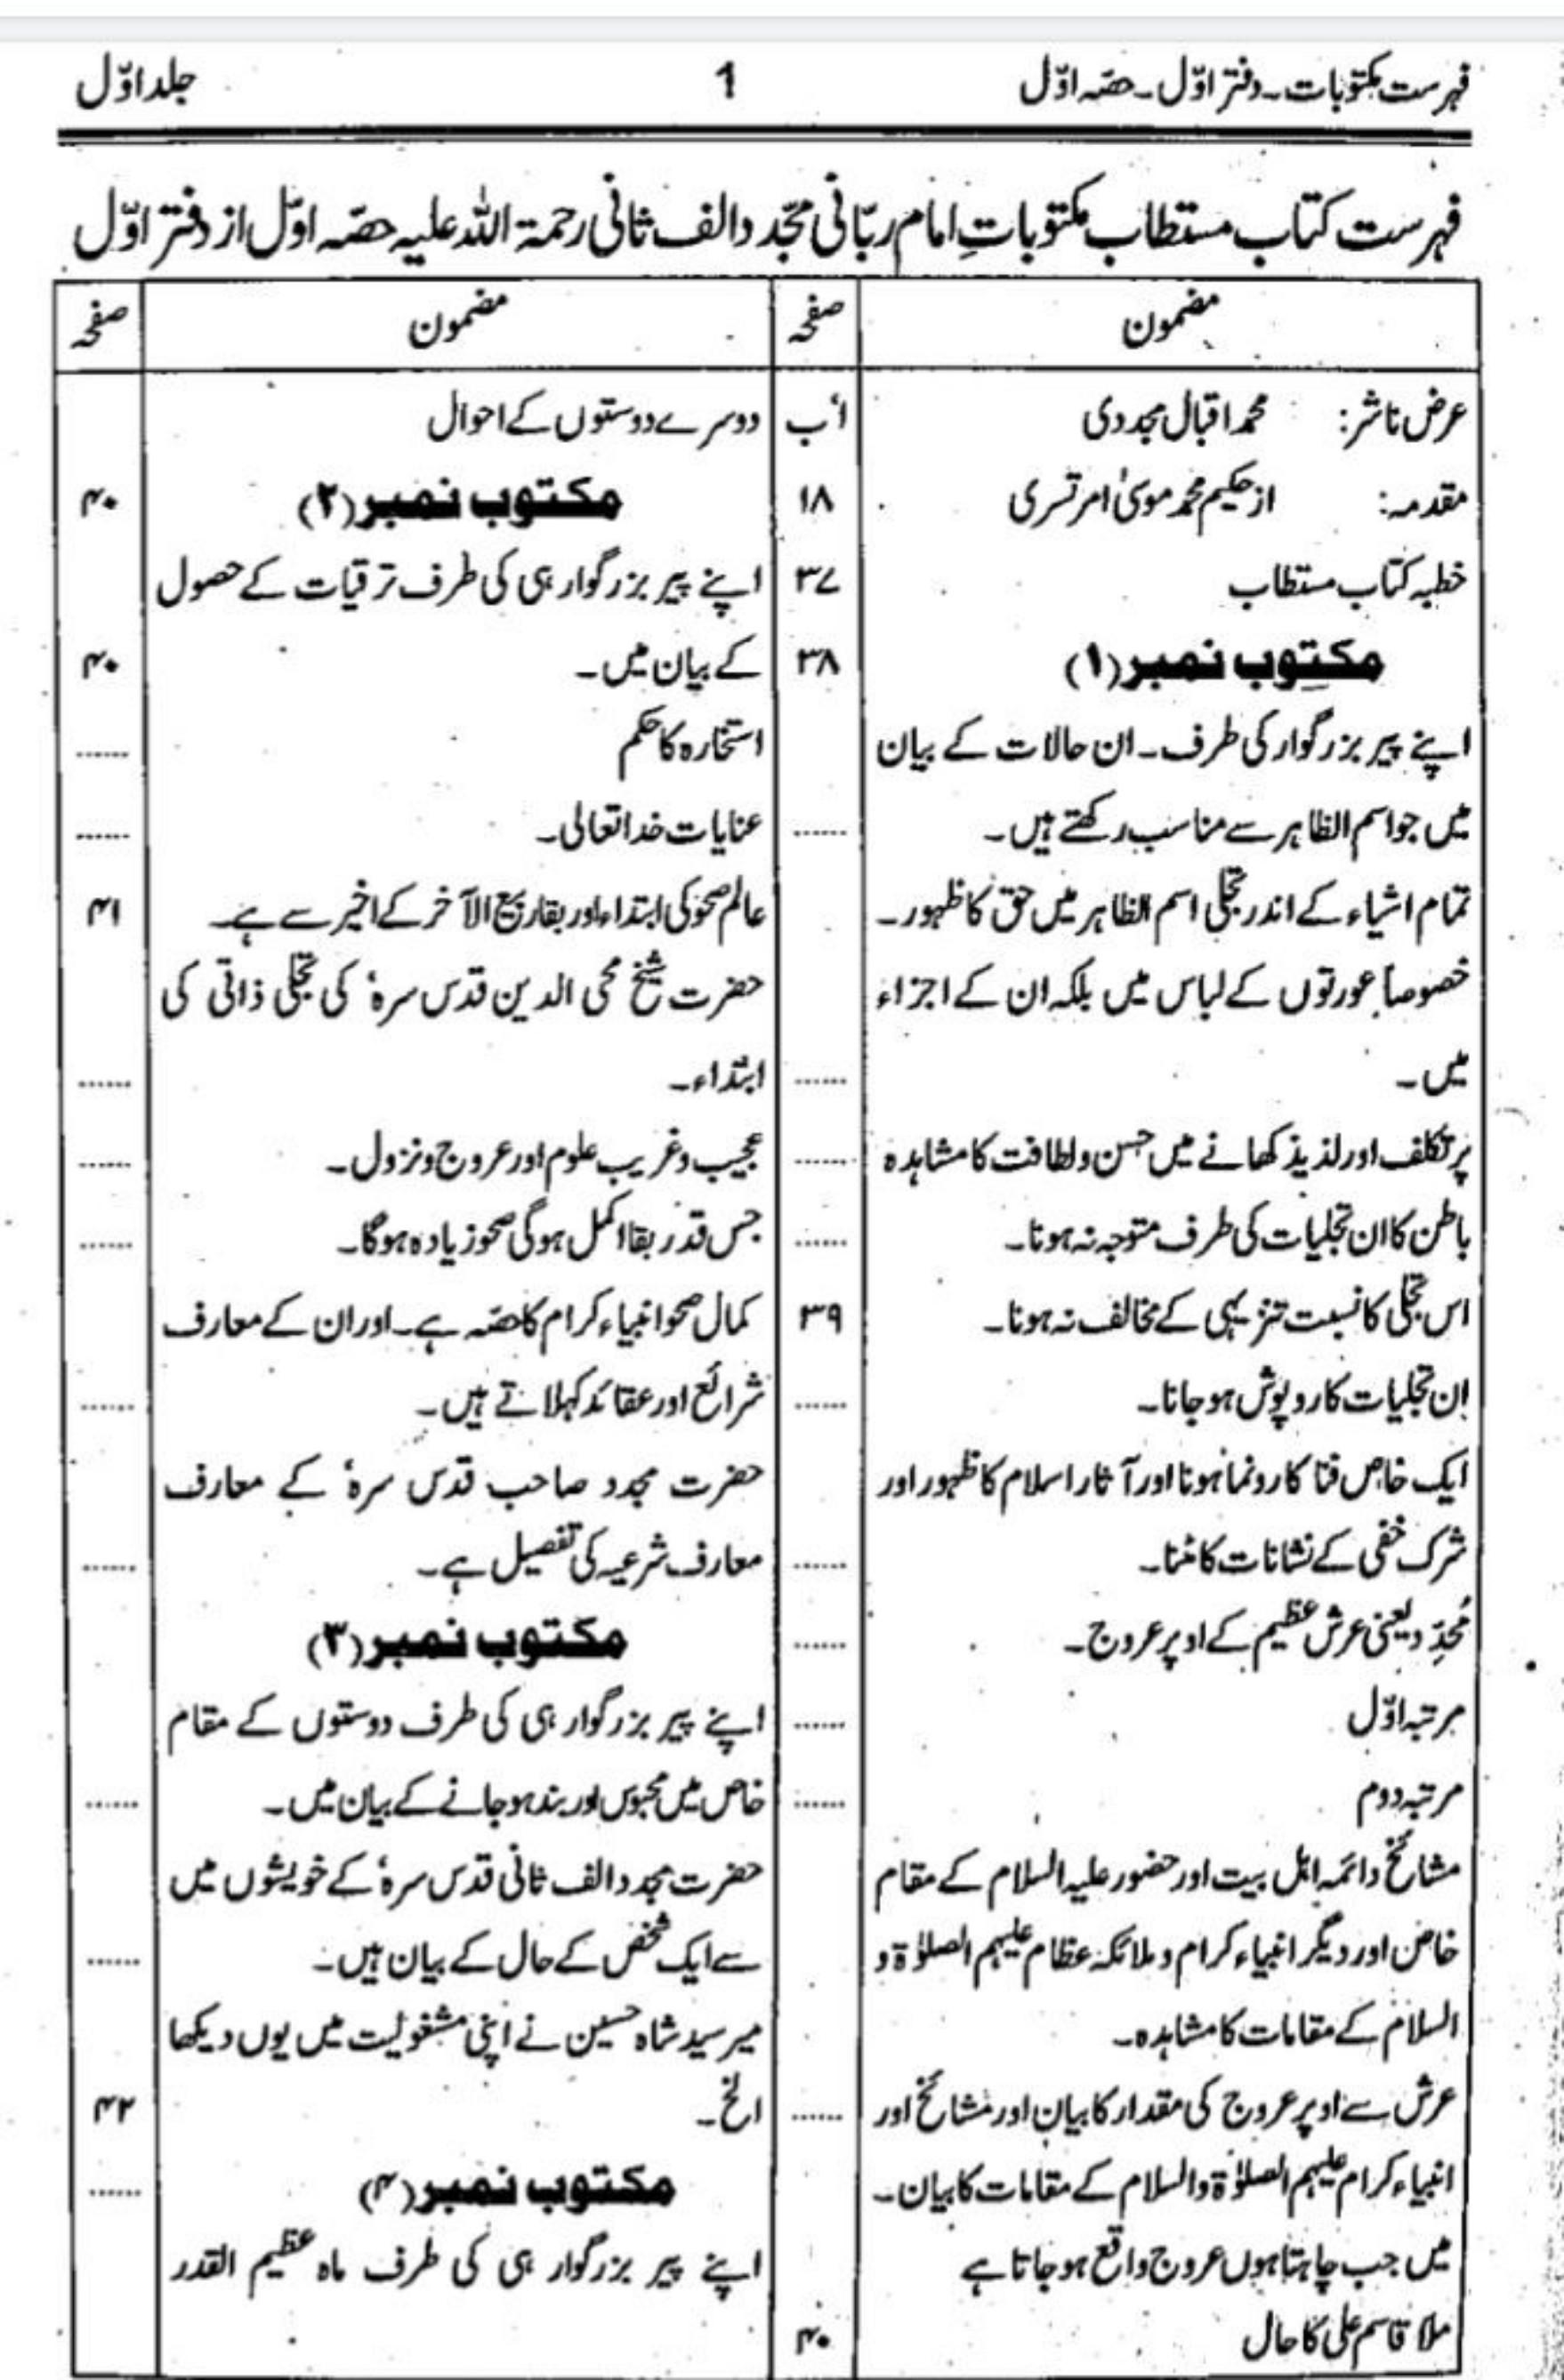 فہرست مکتوبات۔ دفتر اوّل۔ حصّہ اوّل
1
جلد اوّل
فہرست کتاب مستطاب مکتوباتِ امام ربّانی مجّدد الف ثانی رحمۃ اللہ علیہ حصّہ اوّل از دفتر اوّل
مضمون صفحہ
عرض ناشر: محمد اقبال مجددی أب
مقدمہ: از حکیم محمد موسیٰ امرتسری ۱۸
خطبہ کتاب مستطاب ۳۷
مکتوب نمبر (۱) ۳۸
اپنے پیر بزرگوار کی طرف۔ ان حالات کے بیان
میں جو اسم الظاہر سے مناسب رکھتے ہیں۔ ......
تمام اشیاء کے اندر تجلی اسم الظاہر میں حق کا ظہور۔
خصوصاً عورتوں کے لباس میں بلکہ ان کے اجزاء
میں۔ ......
پر تکلف اور لذیذ کھانے میں حسن ولطافت کا مشاہدہ ......
باطن کا ان تجلیات کی طرف متوجہ نہ ہونا۔ ......
اس تجلی کا نسبت تنزیہی کے مخالف نہ ہونا۔ ۳۹
اِن تجلیات کا روپوش ہو جانا۔ ......
ایک خاص فنا کا رونما ہونا اور آثار اسلام کا ظہور اور
شرک خفی کے نشانات کا مٹنا۔ ......
مُحدِّد یعنی عرش عظیم کے اوپر عروج۔ ......
مرتبہ اوّل ......
مرتبہ دوم ......
مشائخ وائمہ اہل بیت اور حضور علیہ السلام کے مقام
خاص اور دیگر انبیاء کرام و ملائکہ عظام علیہم الصلوٰۃ و
السلام کے مقامات کا مشاہدہ۔
عرش سے اوپر عروج کی مقدار کا بیان اور مشائخ اور ......
انبیاء کرام علیہم الصلوٰۃ والسلام کے مقامات کا بیان۔
میں جب چاہتا ہوں عروج واقع ہو جاتا ہے
ملا قاسم علی کا حال ۴۰
مضمون صفحہ
دوسرے دوستوں کے احوال
مکتوب نمبر (۲) ۴۰
اپنے پیر بزرگوار ہی کی طرف ترقیات کے حصول
کے بیان میں۔ ۴۰
استخارہ کا حکم ......
عنایات خدا تعالی۔ ......
عالم صحو کی ابتداء اور بقا ربیع الآخر کے اخیر سے ہے۔ ۴۱
حضرت شیخ محی الدین قدس سرہٗ کی تجلی ذاتی کی
ابتداء۔ ......
عجیب وغریب علوم اور عروج ونزول۔ ......
جس قدر بقا اکمل ہوگی صحو زیادہ ہوگا۔ ......
کمال صحو انبیاء کرام کا حصّہ ہے۔ اور ان کے معارف
شرائع اور عقائد کہلاتے ہیں۔ ......
حضرت مجدد صاحب قدس سرہٗ کے معارف
معارف شرعیہ کی تفصیل ہے۔ ......
مکتوب نمبر (۳)
اپنے پیر بزرگوار ہی کی طرف دوستوں کے مقام
خاص میں محبوس اور بند ہو جانے کے بیان میں۔ ......
حضرت مجدد الف ثانی قدس سرہٗ کے خویشوں میں
سے ایک شخص کے حال کے بیان ہیں۔ ......
میر سید شاہ حسین نے اپنی مشغولیت میں یوں دیکھا
الخ۔ ۴۲
مکتوب نمبر (۴) ......
اپنے پیر بزرگوار ہی کی طرف ماہ عظیم القدر